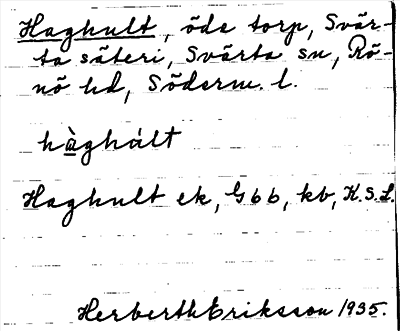 Haghult, öde torp, Svär-
ta säteri, Svärta sn, Rö-
nö hd, Söderm. l.
hàghált
Haghult ek, G66, kb, K.S.L.
Herberth Eriksson 1935.